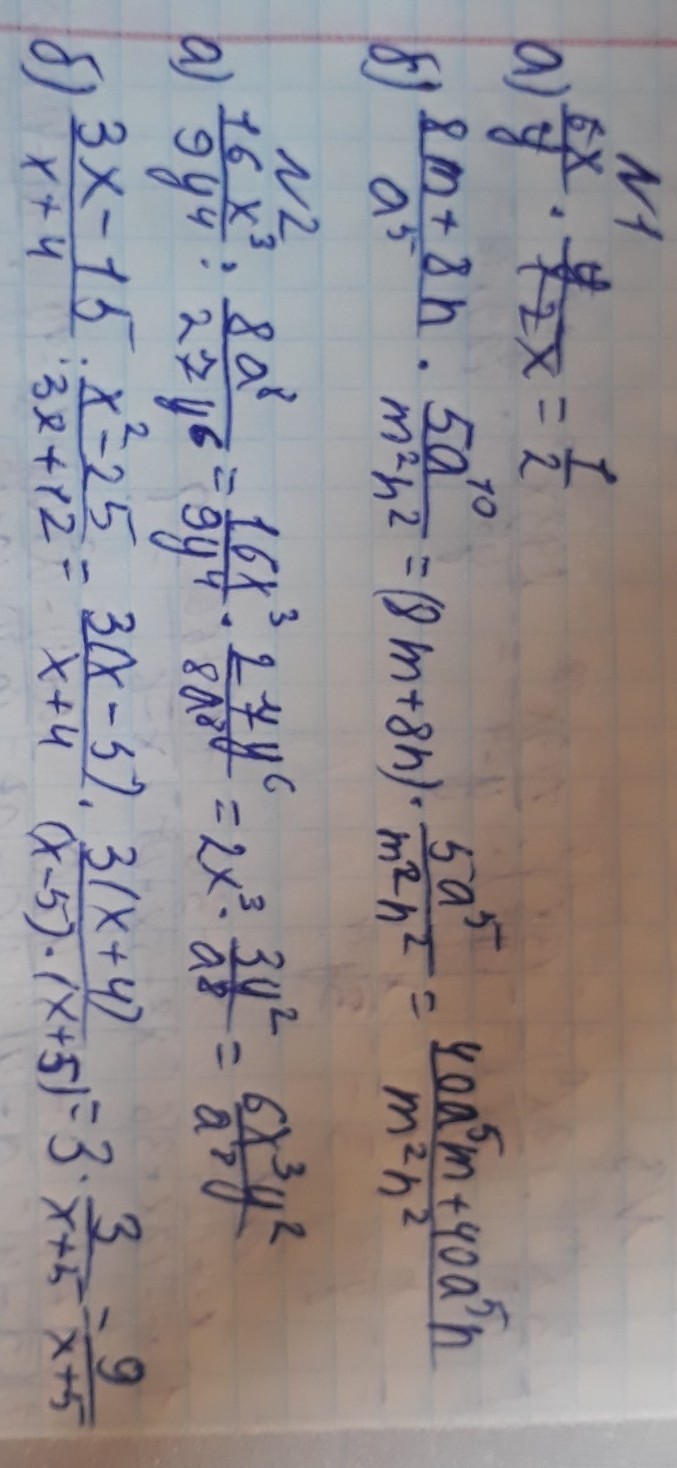 N1
а) 6x/y · y/12x = 1/2
б) (8m+8n)/a⁵ · 5a¹⁰/m²n² = (8m+8n) · 5a⁵/m²n² = (40a⁵m+40a⁵n)/m²n²
N2
а) 16x³/9y⁴ : 8a⁸/27y⁶ = 16x³/9y⁴ · 27y⁶/8a⁸ = 2x³ · 3y²/a⁸ = 6x³y²/a⁸
б) (3x-15)/(x+4) : (x²-25)/(3x+12) = 3(x-5)/(x+4) · 3(x+4)/((x-5)·(x+5)) = 3 · 3/(x+5) = 9/(x+5)